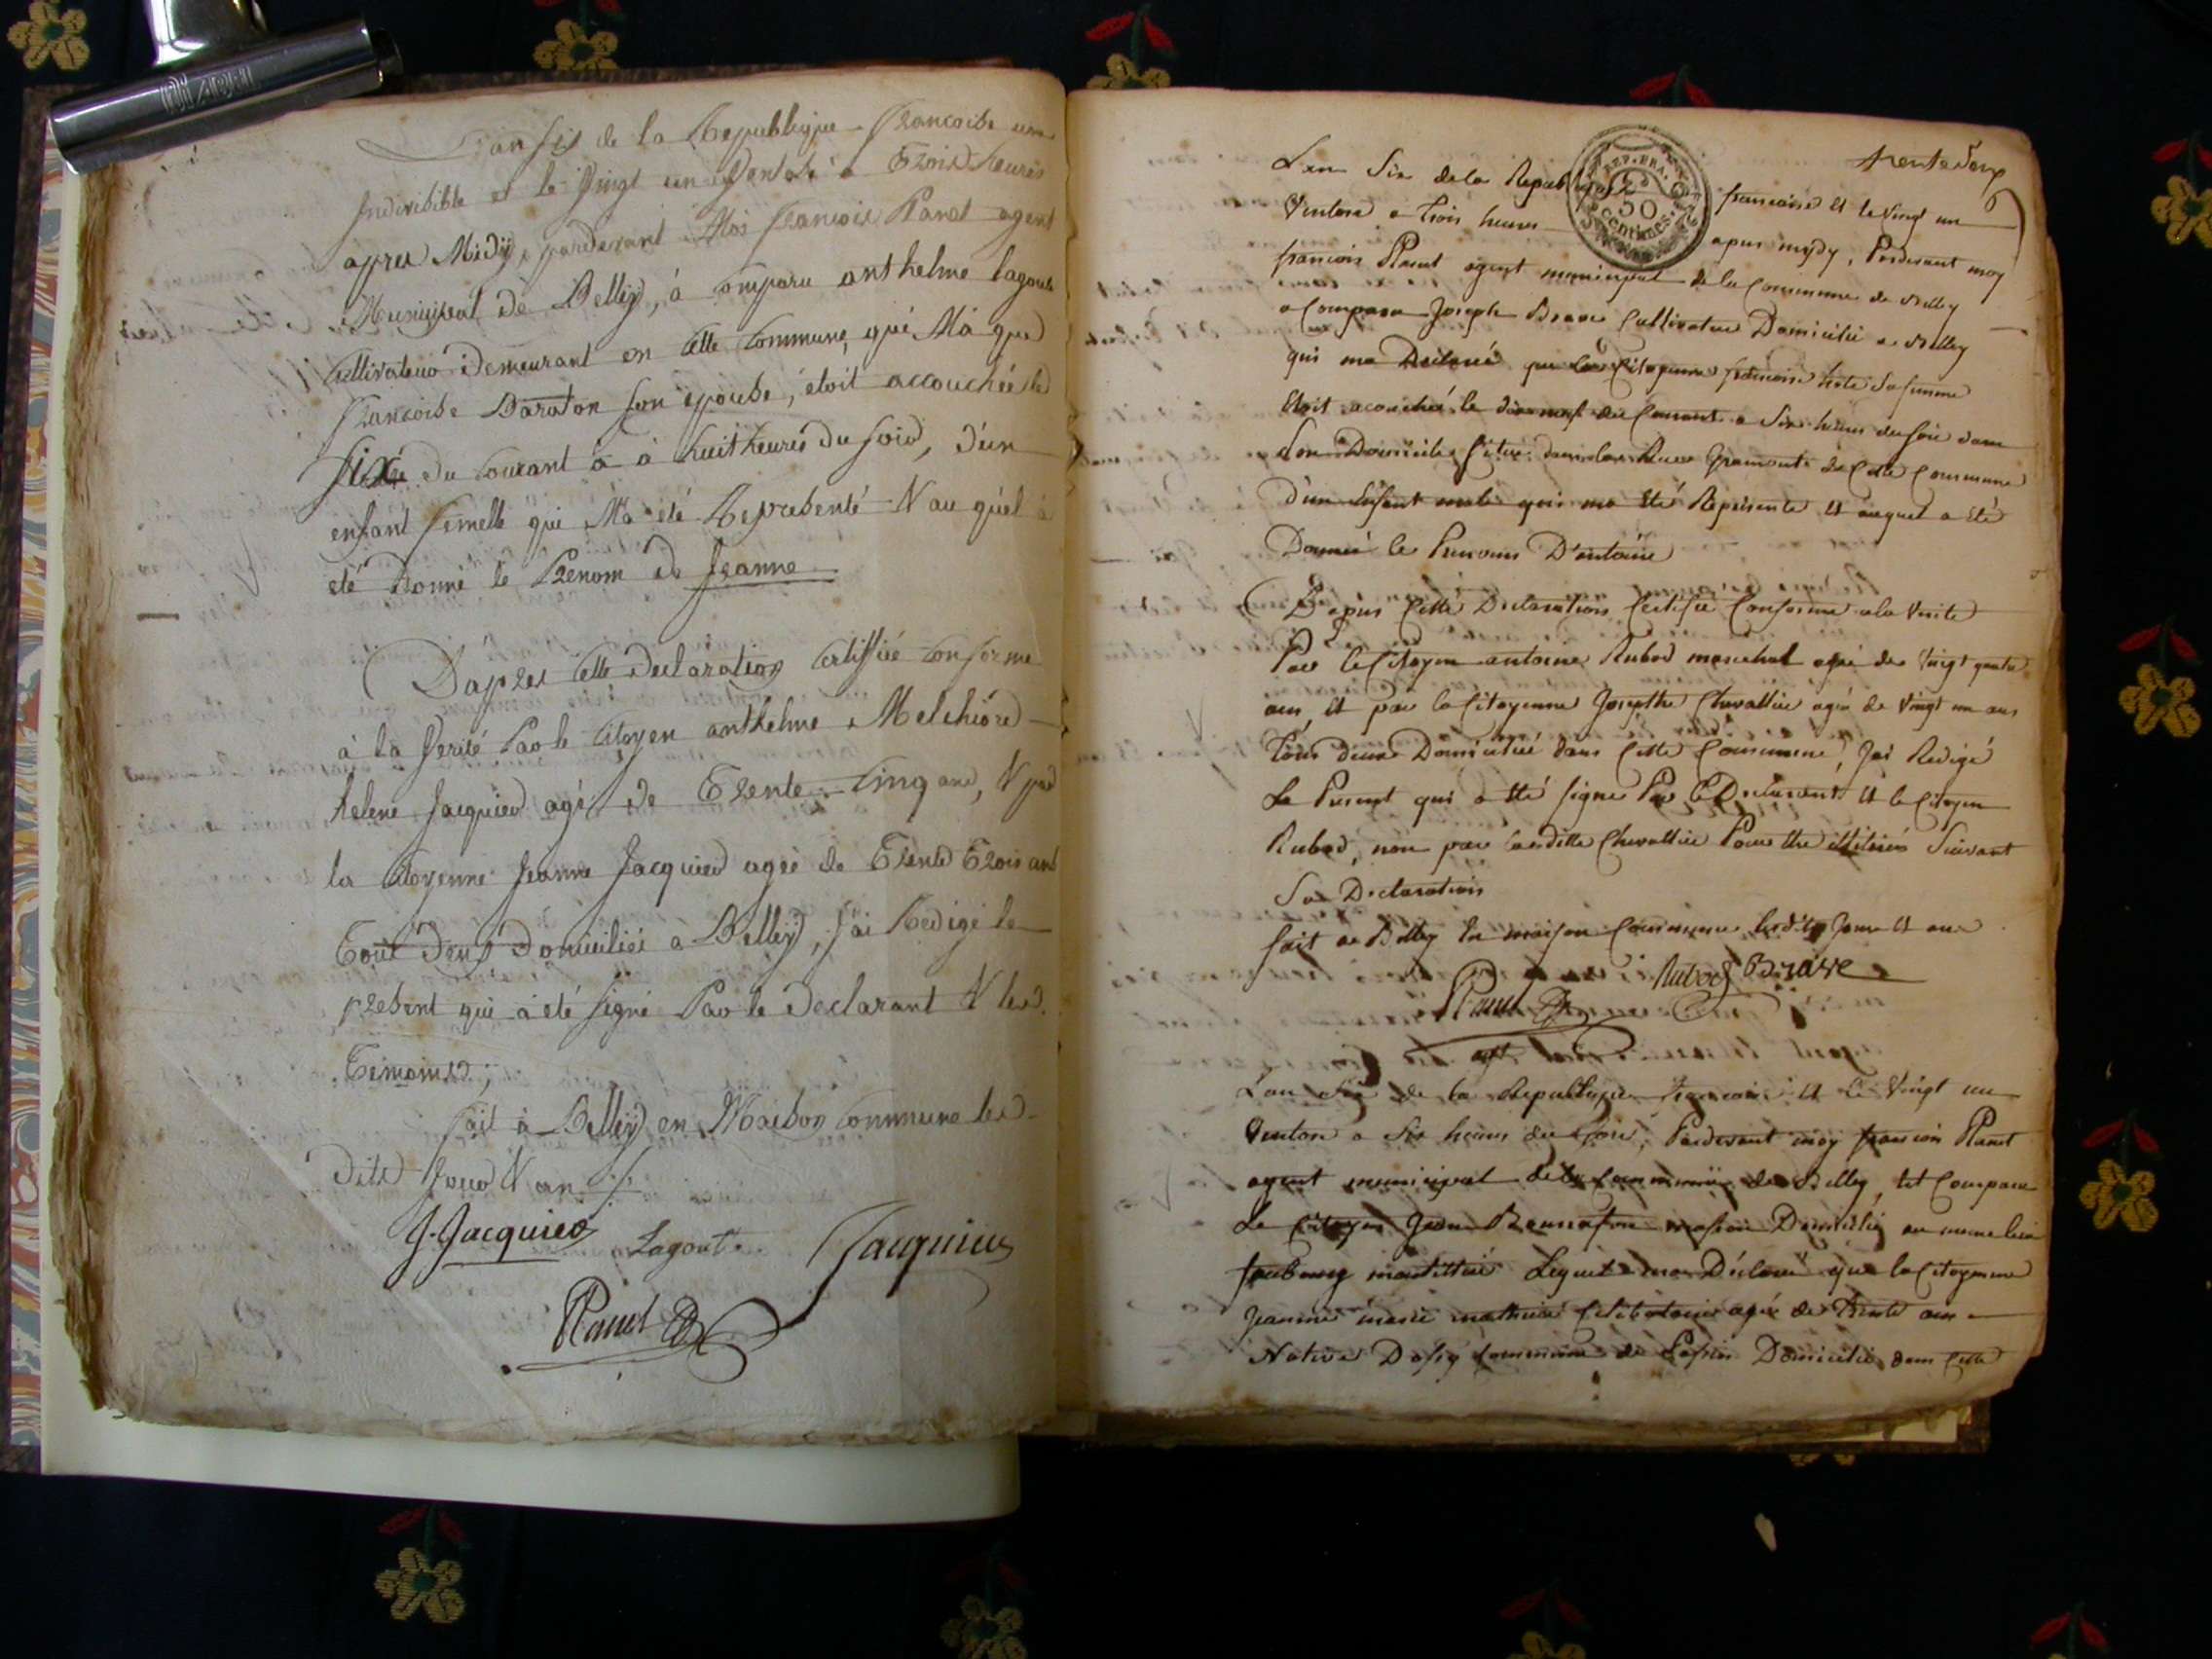 L'an six de la Republique francoise une
Indivisible et le Vingt un Ventose à Trois heures
apres Midÿ, pardevant Moi francois Planet agent
Municipal de Belleÿ, à comparu anthelme lagoute
Cultivateur demeurant en cette Commune, qui M'à que
francoise Daraton son epouse, étoit accouchée le
du courant à à huit heures du soir, d'un
enfant femelle qui M'à été Representé & au quel à
été Donné le Prenom de Jeanne
D'apres cette declaration certiffiée conforme
à la Verité Par le Citoyen anthelme Melchiord
helene Jacquier agé de Trente Cinq ans, & par
la Citoyenne Jeanne Jacquier agée de Trente Trois ans
Tout deux domiciliés à Belleÿ, j'ai Redigé le
present qui à été signé Par le declarant & lesd.
Temoins;
fait à Belleÿ en Maison Commune les
dits Jour & an
J. Jacquier Lagoute Jacquier
Planet
trente
L'an Six de la Republique francoise et le Vingt un
REP. FRA.
50
centimes
Ventose a trois heures apres mydy, Pardevant moy
francois Planet agent municipal de la Commune de Belley
a Comparu Joseph Brave Cultivateur Domicilié a Belley
qui ma Declaré que la Citoyenne francoise sa femme
Etoit acouchée le dixneuf du Courant a Six heures du soir dans
son Domicile situé dans la Rue Gramont de Cette Commune
d'un Enfant male qui ma Eté Représenté et auquel a Eté
Donné le Prenom D'antoine
D'apres Cette Declaration Certifié Conforme a la Verité
Par le Citoyen antoine Rubod marechal agé de Vingt quatre
ans, et par la Citoyenne Josepthe Chevallier agée de Vingt un ans
tous deux Domicilié dans Cette Commune, Jai Redigé
Le Present qui a été signé Par le Declarant et le Citoyen
Rubod, non par laditte Chevallier Pour être illitérée Suivant
Sa Declaration
fait a Belley en maison Commune lesdits Jour et an
Rubod Brave
Planet
agt
L'an Six de la Republique francoise et le Vingt un
Ventose a six heures du soir, Pardevant moy francois Planet
agent municipal de la Commune de Belley, est Comparu
Le Citoyen Jean masson Domicilié au meme lieu
faubourg Lequel ma Déclaré que la Citoyenne
Jeanne marie Celibataire agée de trente ans
Native Commune de Domicilié dans Cette